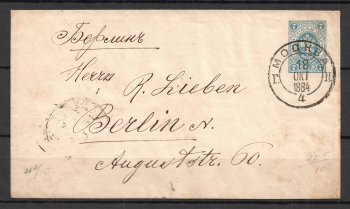 Берлинъ
Herrn R. Lieben
Berlin N.
Auguststr. 60.
7 7
МОСКВА
18
ОКТ
1884
4